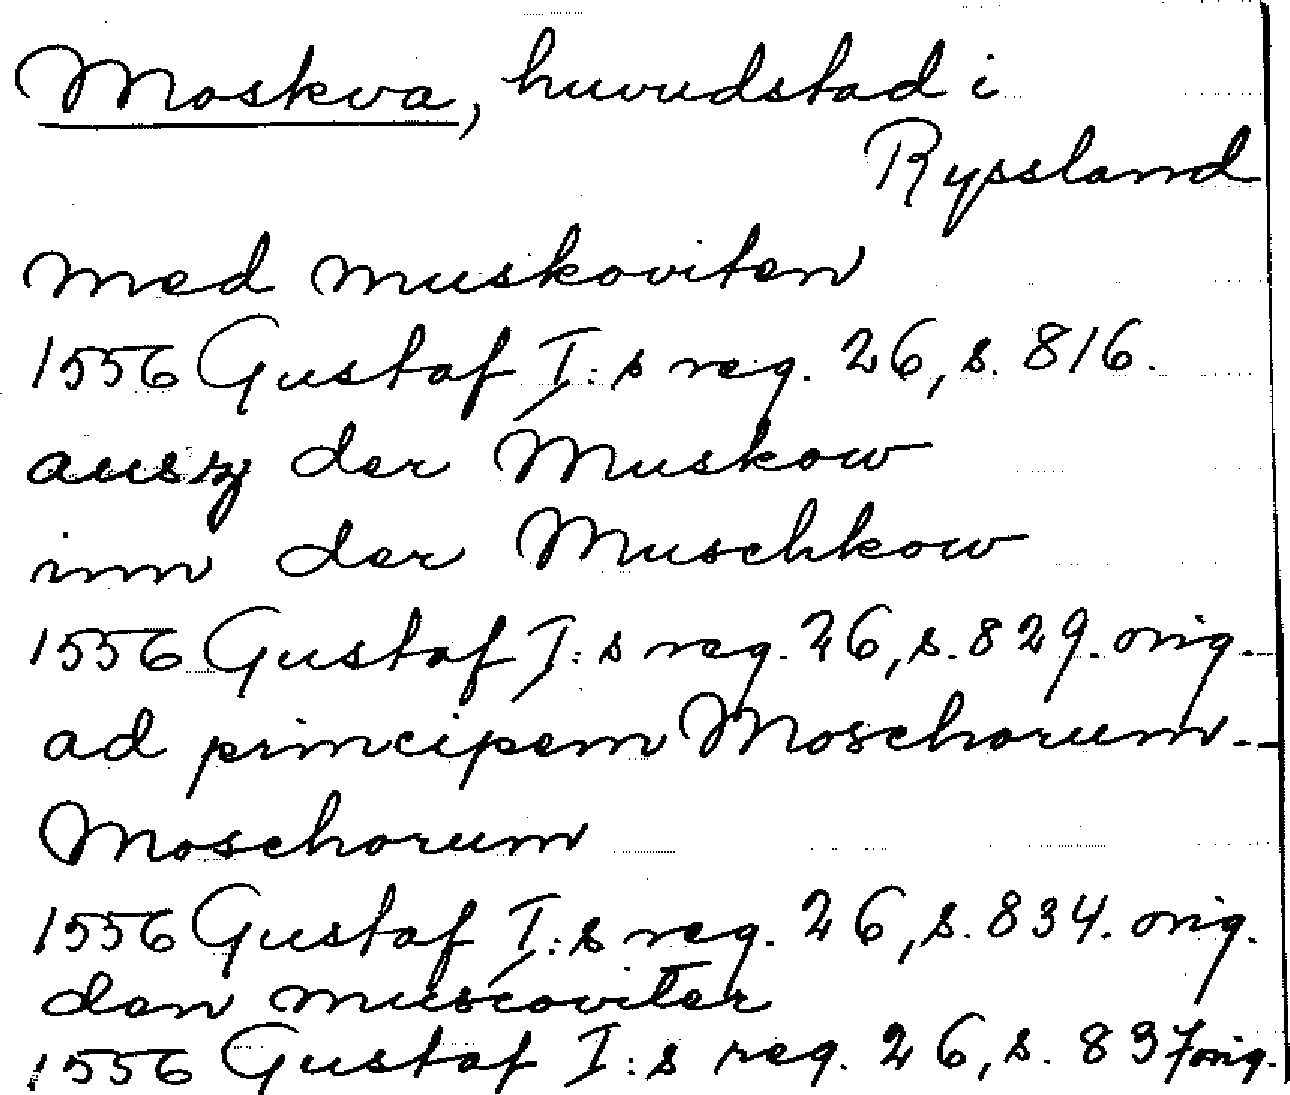 Moskva, huvudstad i
Ryssland
med muskoviten
1556 Gustaf I:s reg. 26, s. 816.
ausz der Muskow
inn der Muschkow
1556 Gustaf I:s reg. 26, s. 829. orig.
ad principem Moschorum
Moschorum
1556 Gustaf I:s reg. 26, s. 834. orig.
den muscoviter
1556 Gustaf I:s reg. 26, s. 837 orig.